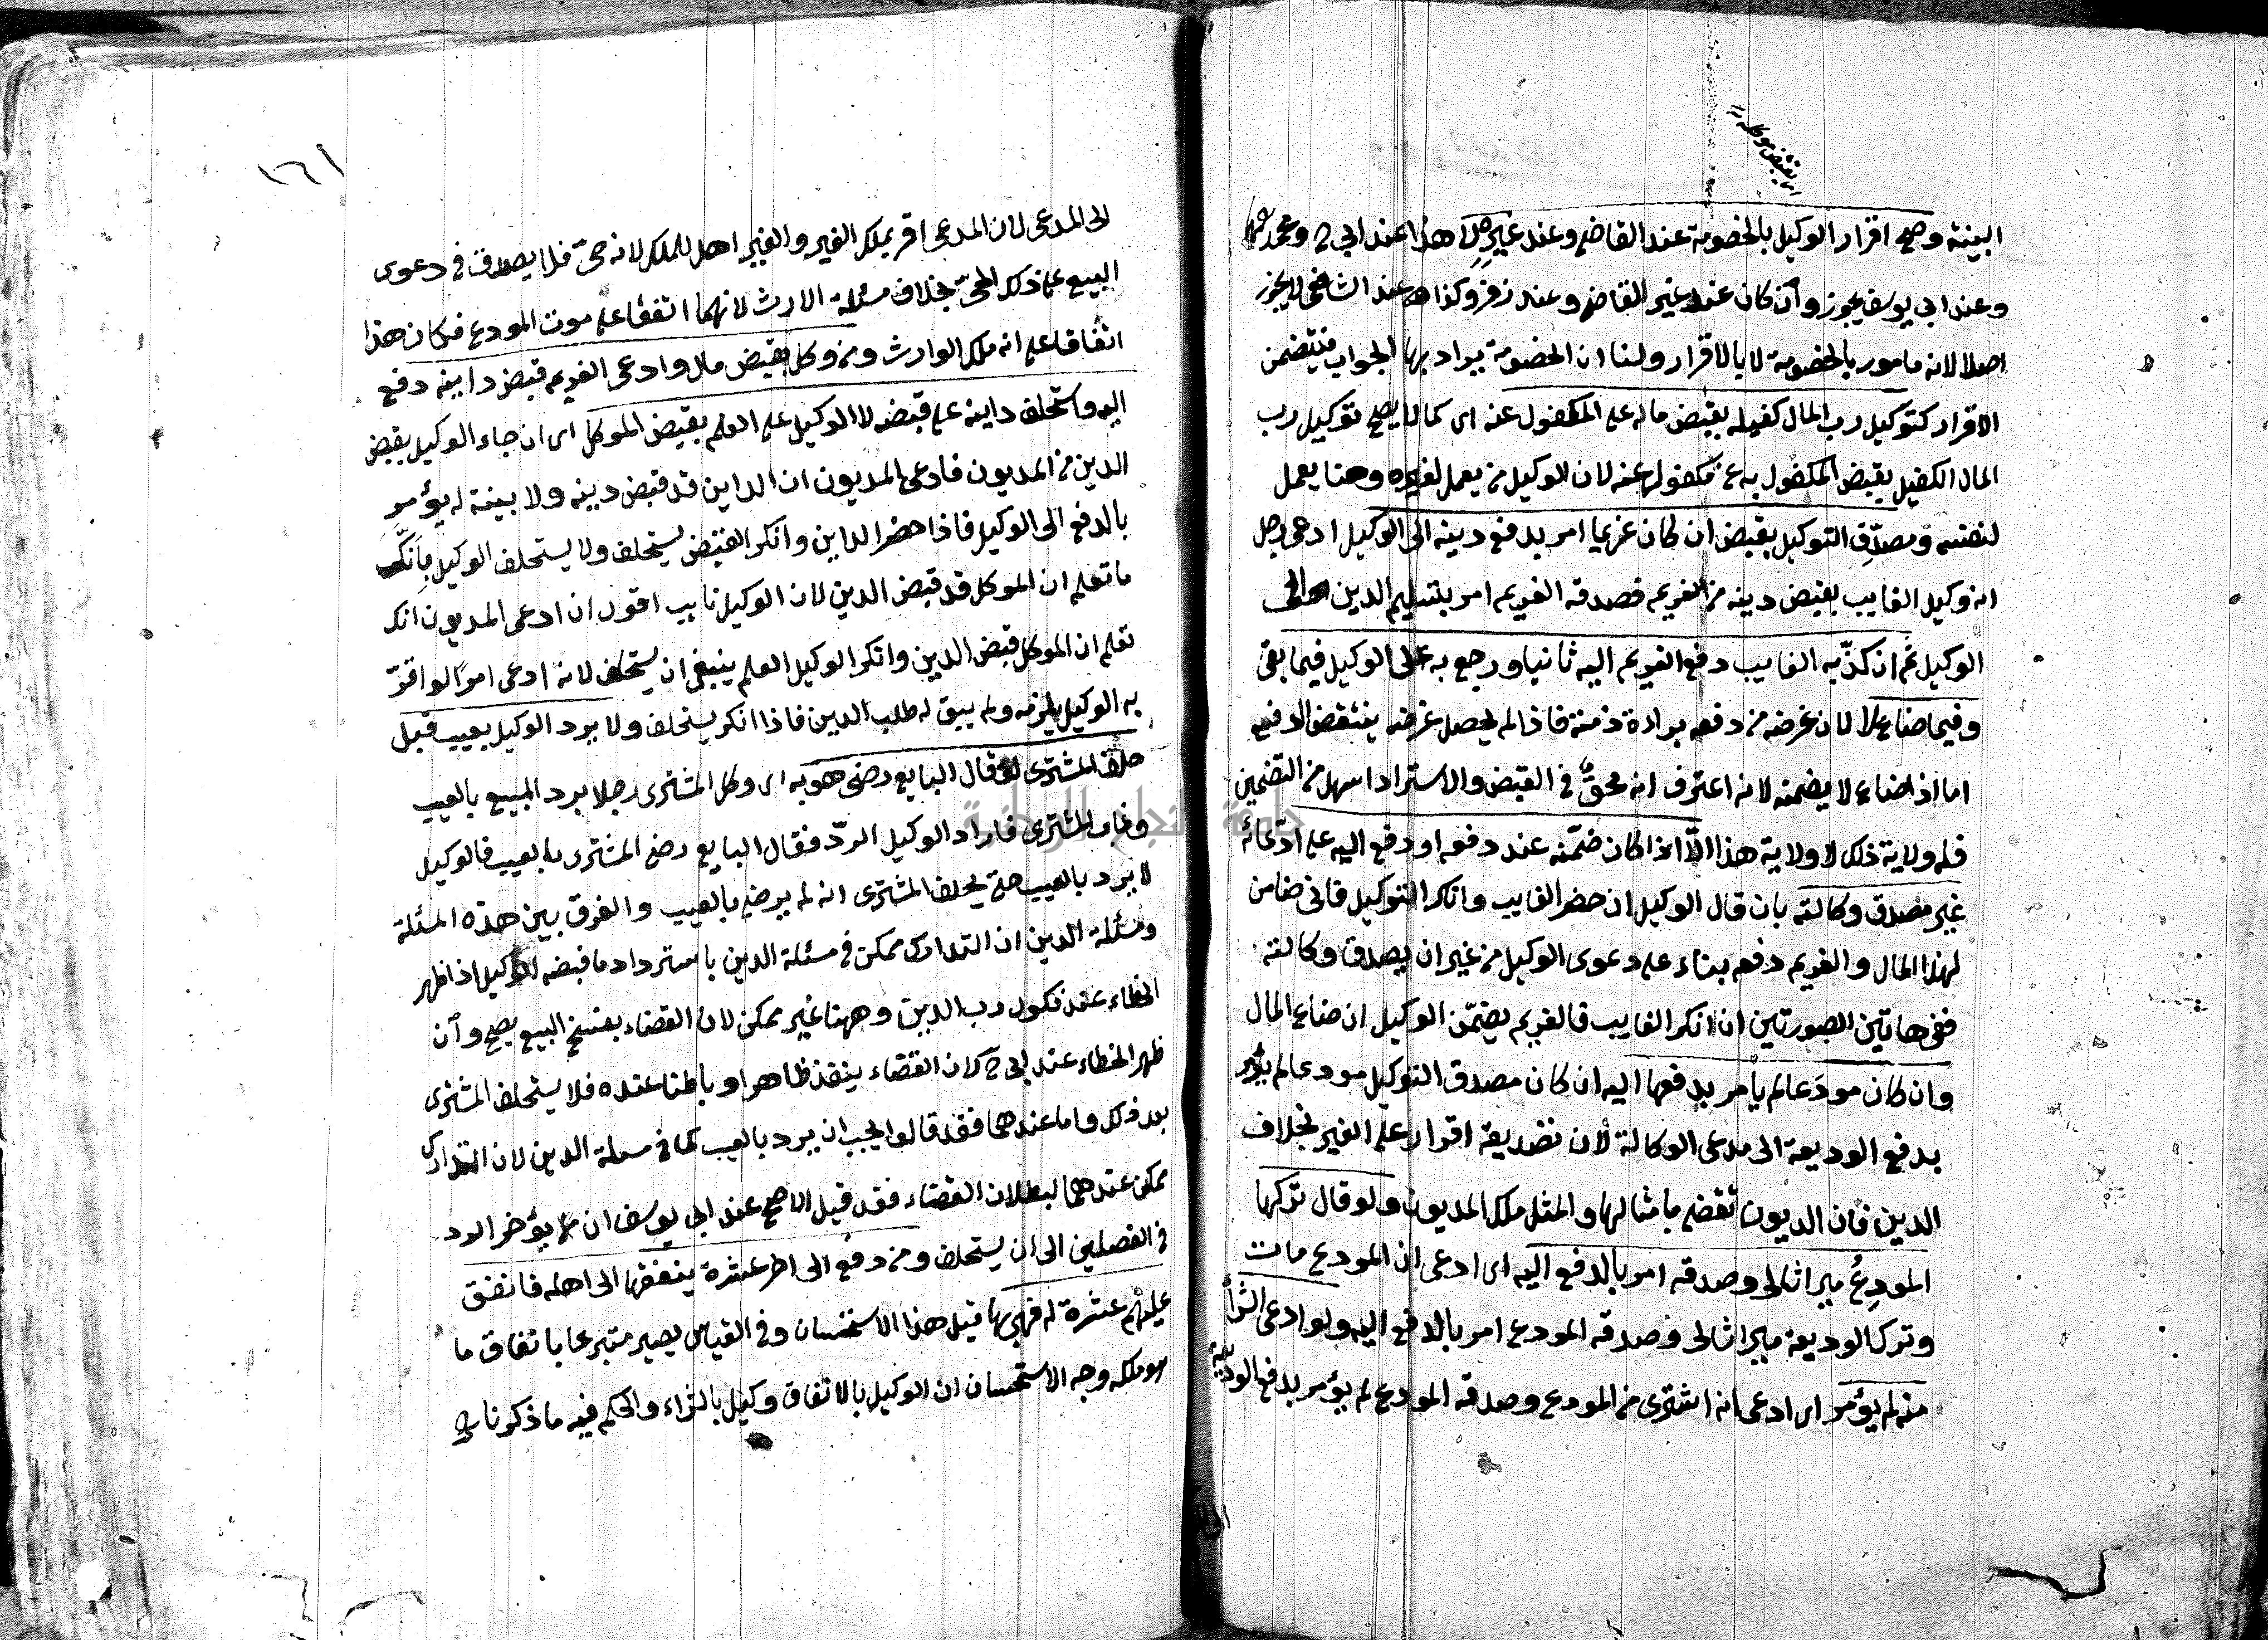 البينة وصح اقرار الوكيل بالخصومة عند القاضي وعند غيره لا هذا عند ابي ح ومحمد
وعند ابي يوسف يجوز وان كان عند غير القاضي وعند زفر وكذا عند الشافعي لا يجوز
اصلا لانه مامور بالخصومة لا بالاقرار ولنا ان الخصومة يراد بها الجواب فيتضمن
الاقرار كتوكيل رب المال كفيله بقبض ماله على المكفول عنه اى كما لا يصح توكيل رب
المال الكفيل بقبض المكفول به عن مكفول عنه لان الوكيل من يعمل لغيره وهنا يعمل
لنفسه ومصدّق التوكيل بقبض ان كان غريما امر بدفع دينه الى الوكيل ادعى رجل
انه وكيل الغايب بقبض دينه من الغريم فصدقه الغريم امر بتسليم الدين الى
الوكيل ثم ان كذّبه الغايب دفع الغريم اليه ثانيا ورجع به على الوكيل فيما بقى
وفيما ضاع لا لان غرضه من دفعه براءة ذمته فاذا لم يحصل غرضه ينتقض الدفع
اما اذا ضاع لا يضمنه لانه اعترف انه محقّ في القبض والاسترداد اسهل من التضمين
فله ولاية ذلك لا ولاية هذا الّا اذا كان ضمّنه عند دفعه او دفع اليه على ادّعائه
غير مصدق وكالته بان قال الوكيل ان حضر الغايب وانكر التوكيل فانى ضامن
لهذا المال والغريم دفعه بناء على دعوى الوكيل من غير ان يصدق وكالته
ففى هاتين الصورتين ان انكر الغايب فالغريم يضمّن الوكيل ان ضاع المال
وان كان مودَعا لم يأمر بدفعها اليه ان كان مصدق التوكيل مودعا لم يؤمر
بدفع الوديعة الى مدعى الوكالة لأن تصديقه اقرار على الغير بخلاف
الدين فان الديون تقضى بأمثالها والمثل ملك المديون ولو قال تركها
المودِعُ ميراثا لى وصدقه امر بالدفع اليه اى ادعى ان المودع مات
وترك الوديعة ميراثا لى وصدقه المودع امر بالدفع اليه ولو ادعى الشراء
منه لم يؤمر اى ادعى انه اشترى من المودع وصدقه المودع لم يؤمر بدفع الوديعة
١٦١
الى المدعى لان المدعى اقر بملك الغير والغير اهل للملك لانه حىّ فلا يصدق في دعوى
البيع على ذلك الحىّ بخلاف مسئلة الارث لانهما اتفقا على موت المودع فكان هذا
اتفاقا على انه ملك الوارث ومن وكل بقبض مال وادعى الغريم قبض داينه دفع
اليه واستحلف داينه على قبضه لا الوكيل على العلم بقبض الموكل اى ان جاء الوكيل بقبض
الدين من المديون فادعى المديون ان الداين قد قبض دينه ولا بينة له يؤمر
بالدفع الى الوكيل فاذا حضر الداين وانكر القبض يستحلف ولا يستحلف الوكيل بانّك
ما تعلم ان الموكل قد قبض الدين لان الوكيل نايب اقول ان ادعى المديون انك
تعلم ان الموكل قبض الدين وانكر الوكيل العلم ينبغى ان يستحلف لانه ادعى امرا لو اقرّ
به الوكيل يلزمه ولم يبق له طلب الدين فاذا انكر يستحلف ولا يرد الوكيل بعيب قبل
حلف المشترى لو قال البايع رضى هو به اى وكل المشترى رجلا برد المبيع بالعيب
وغاب المشترى فاراد الوكيل الردّ فقال البايع رضى المشترى بالعيب فالوكيل
لا يرد بالعيب حتى يحلف المشترى انه لم يرض بالعيب والفرق بين هذه المسئلة
ومسئلة الدين ان التدارك ممكن في مسئلة الدين باسترداد ما قبضه الوكيل اذا ظهر
الخطاء عند نكول رب الدين وههنا غير ممكن لان القضاء بفسخ البيع يصح وان
ظهر الخطاء عند ابى ح لان القضاء ينفذ ظاهرا وباطنا عنده فلا يستحلف المشترى
بعد ذلك واما عندهما فقد قالوا يجب ان يرد بالعيب كما في مسئلة الدين لان التدارك
ممكن عندهما لبطلان القضاء فقد قيل الاصح عند ابى يوسف ان يؤخر الرد
في الفصلين الى ان يستحلف ومن دفع الى اخر عشرة ينفقها الى اهله فانفق
عليهم عشرة له فهى بها قيل هذا الاستحسان وفى القياس يصير متبرعا باتفاق ما
هو ملكه وجه الاستحسان ان الوكيل بالانفاق وكيل بالشراء والحكم فيه ما ذكرنا